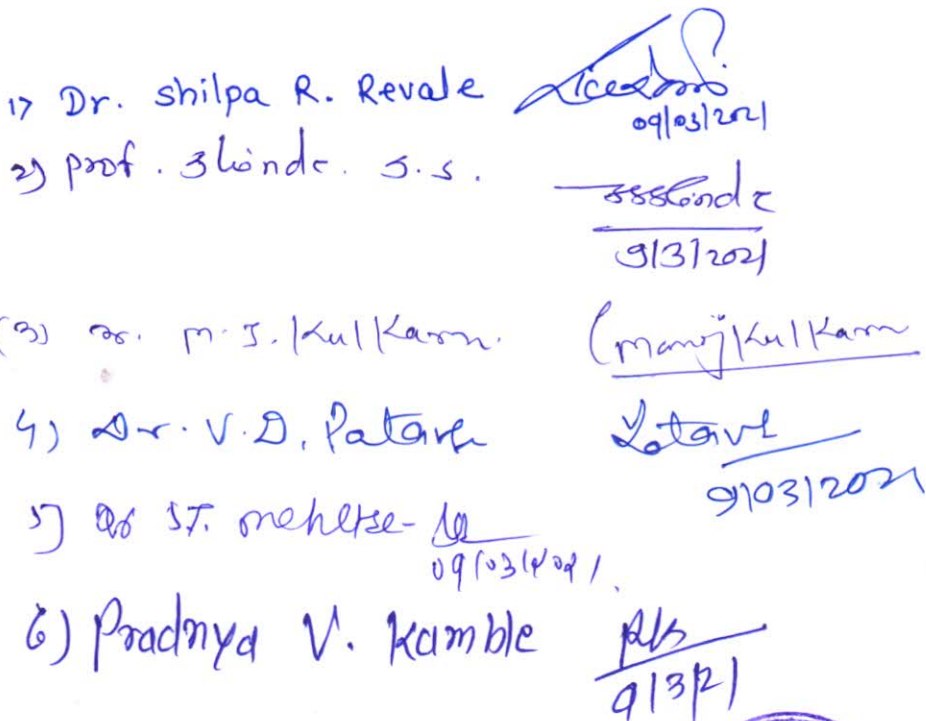 1) Dr. Shilpa R. Revale
09/03/2021
2) Prof. Shinde. S.S.
SSShinde
9/3/2021
(3) Dr. M.J. Kulkarni. (Manoj Kulkarni
4) Dr. V.D. Patave
9/03/2021
5) Dr S.T.
09/03/2021.
6) Pradnya V. Kamble
9/3/21